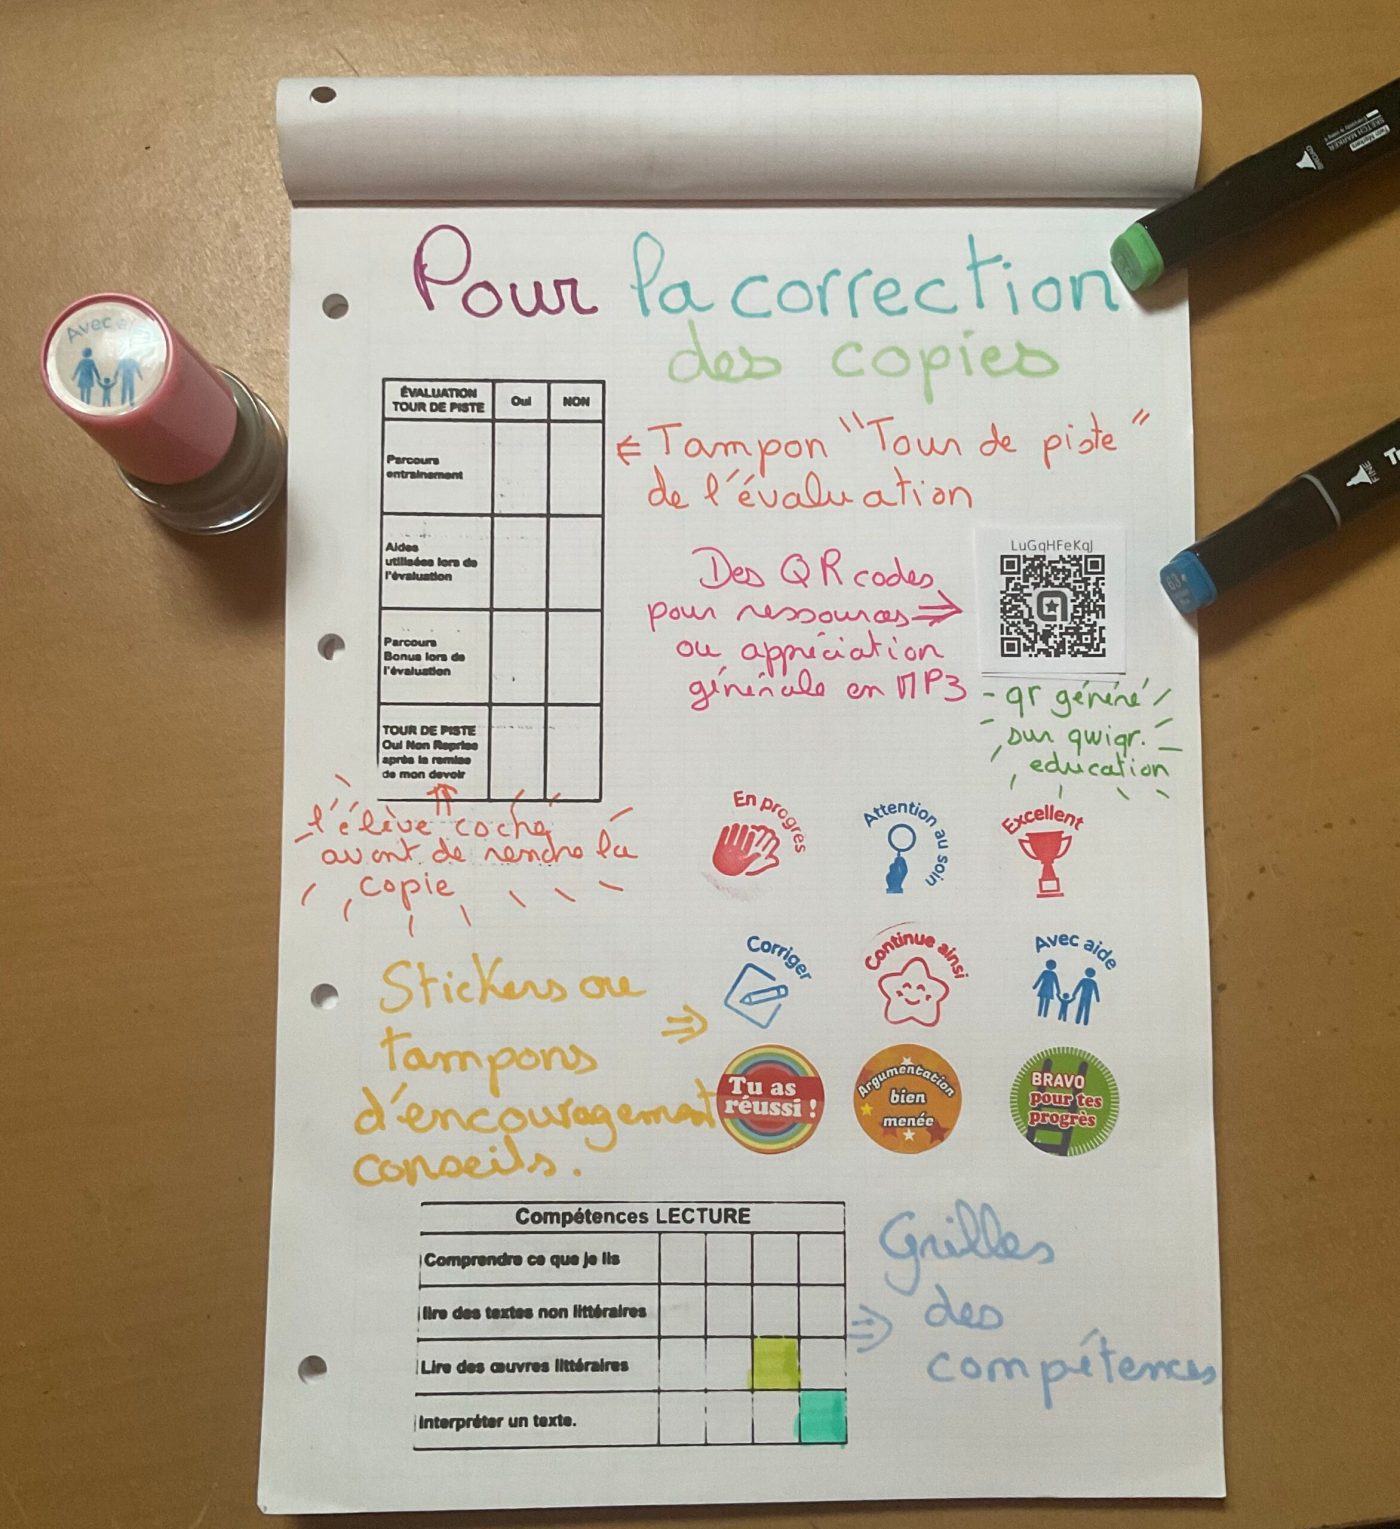 Pour la correction
des copies
ÉVALUATION
TOUR DE PISTE
Oui
NON
Parcours
entrainement
Aides
utilisées lors de
l'évaluation
Parcours
Bonus lors de
l'évaluation
TOUR DE PISTE
Oui Non Reprise
après la remise
de mon devoir
⇐ Tampon "Tour de piste"
de l'évaluation
Des QR codes
pour ressources ⇒
ou appréciation
générale en MP3
LuGqHFeKqJ
- qr généré
sur qwiqr.
education
l'élève coche
avant de rendre la
copie
En progrès
Attention au soin
Excellent
Corriger
Continue ainsi
Avec aide
Stickers ou
tampons
d'encouragement
conseils.
Tu as
réussi !
Argumentation
bien
menée
BRAVO
pour tes
progrès
Compétences LECTURE
Comprendre ce que je lis
lire des textes non littéraires
Lire des œuvres littéraires
Interpréter un texte.
Grilles
des
compétences
Avec
SKETCH MARKER
BROAD
FINE